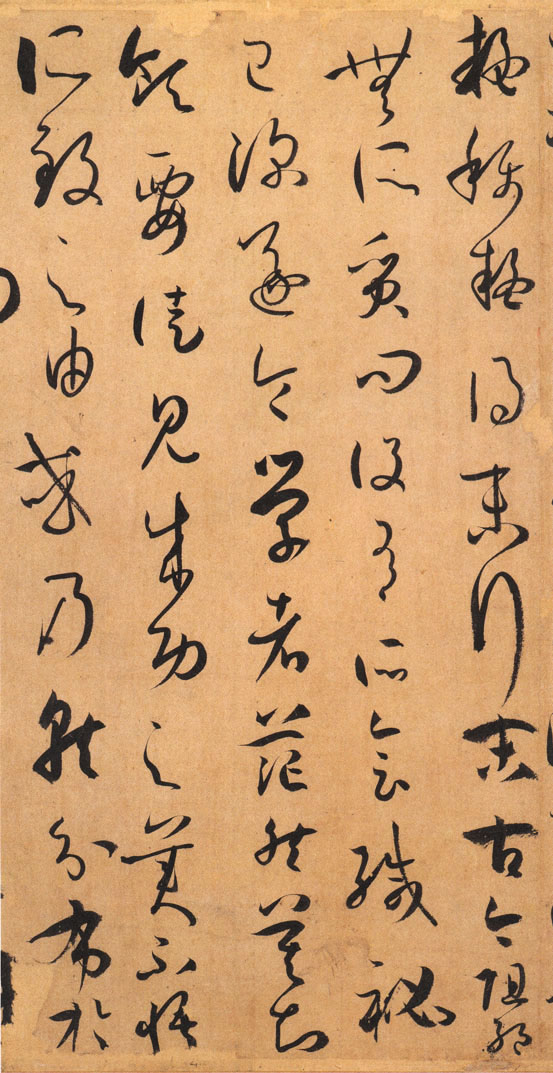 疑稱疑得末行末古今阻絕
無所質問設有所會緘秘
已深遂令學者茫然莫知
領要徒見成功之美不悟
所致之由或乃就分布於